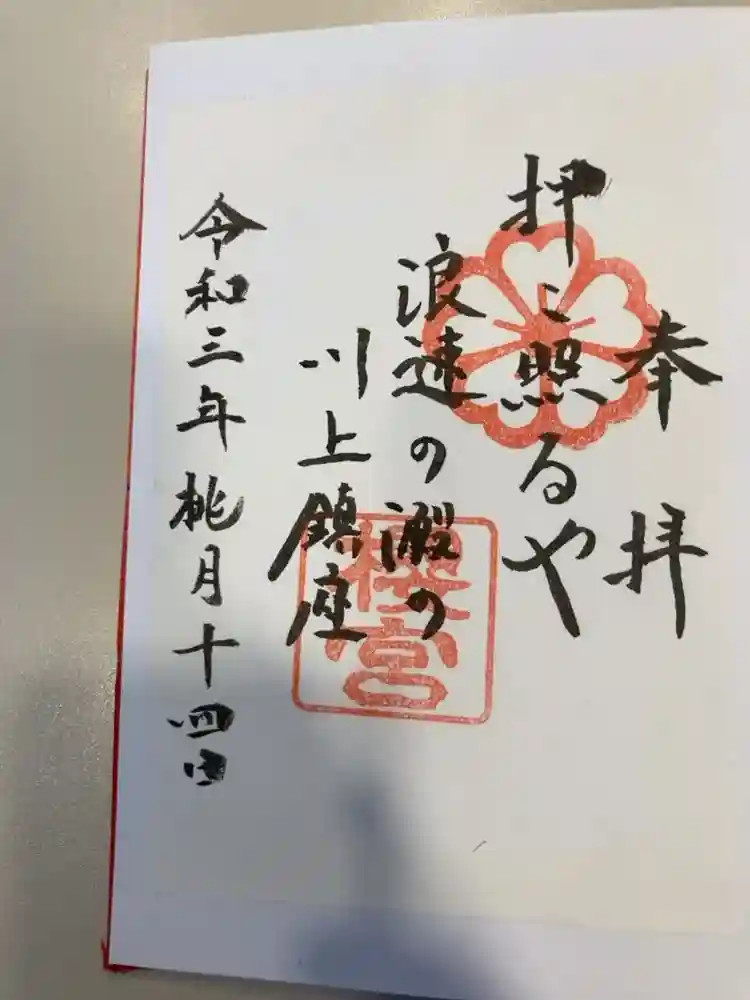 奉拝
押に照るや
浪速の澱の
川上鎮座
令和三年桃月十四日
櫻宮